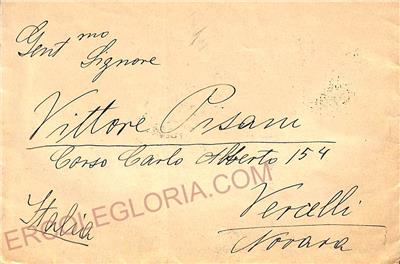 Gent^mo
Signore
Vittore Pisani
Corso Carlo Alberto 154
Italia
Vercelli
Novara
ERCOLEGLORIA.COM